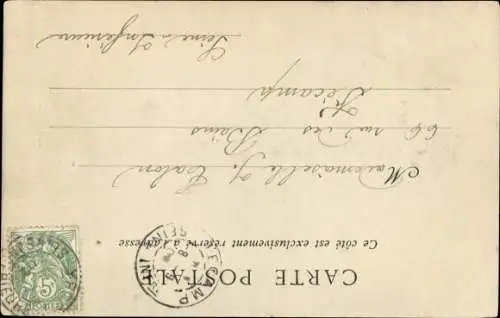 CARTE POSTALE
Ce côté est exclusivement réservé à l'adresse
Mademoiselle J. Calon
66 rue des Bains
Fécamp
Seine Inférieure
FECAMP
SEINE INF
5